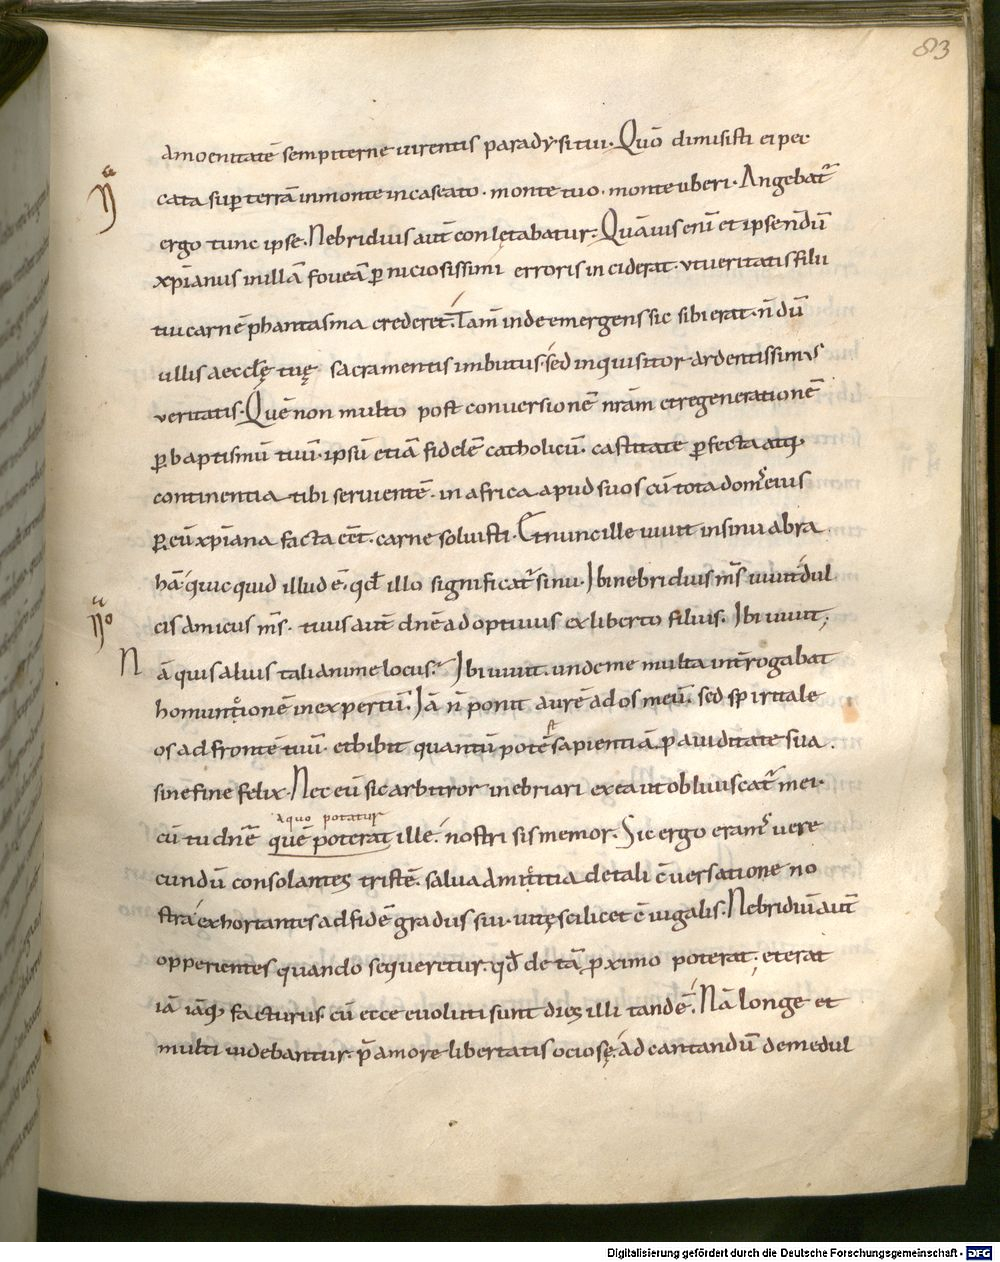 83
amoenitatē sempiterne uirentis paradysi tui. Quō dimisisti ei pec
cata sup terrā in monte incaseato. monte tuo. monte uberi. Angebat̄
ergo tunc ipse. Nebridius aut̄ conlętabatur. Quāuis eni et ipse n̄dū
xp̄ianus in illā foueā p̄niciosissimi erroris inciderat. ut ueritatis filii
tui carnē phantasma crederet. Tam̄ inde emergens sic sibi erat. n̄dū
ullis aecclę̄ tuę sacramentis imbutus. sed inquisitor ardentissimus
ueritatis. Quē non multo post conuersionē nr̄am et regenerationē
p̄ baptismū tuū. ipsū etiā fidelē catholicū. castitate p̄fecta atq;
continentia tibi seruientē. in africa apud suos cū tota dom̄ eius
p̄ eū xp̄iana facta eēt. carne soluisti. Et nunc ille uiuit in sinu abra
hā. quicquid illud ē. qd̄ illo significat̄ sinu. Ibi nebridius m̄s uiuit. dul
cis amicus m̄s. tuus aut̄ dn̄e adoptiuus ex liberto filius. Ibi uiuit;
Nā quis alius tali anime locus? Ibi uiuit. unde me multa int̄rogabat
homuntionē inexpertū. Iā n̄ ponit aurē ad os meū. sed spiritale
os ad frontē tuū. et bibit quantū potē st sapientiā p̄ auiditate sua.
sine fine felix. Nec eū sic arbitror inebriari ex ea ut obliuiscat̄ mei.
a quo potatur
cū tu dn̄e quē poterat ille. nostri sis memor. Sic ergo eram̄ uere
cundū consolantes tristē. salua amititia de tali c̄uersatione no
stra. exhortantes ad fidē gradus sui. uitę scilicet c̄iugalis. Nebridiū aut̄
opperientes quando sequeretur. qd̄ de tā p̄ximo poterat. et erat
iā iāq; facturus cū ecce euoluti sunt dies illi tandē. Nā longe et
multi uidebantur. p̄ amore libertatis ociosę. ad cantandū de medul
Digitalisierung gefördert durch die Deutsche Forschungsgemeinschaft - DFG